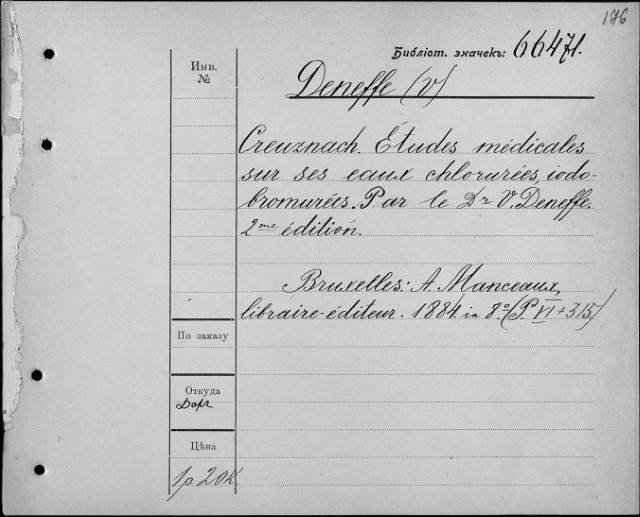 176
Библіот. значекъ: 66471.
Инв.
№
Deneffe (V)
Creuznach. Études médicales
sur ses eaux chlorurées, iodo-
bromurées. Par le Dr V. Deneffe.
2me édition.
Bruxelles: A. Manceaux,
libraire-éditeur. 1884. in 8o (P. VI + 315)
По заказу
Откуда
Цѣна
1р 20к